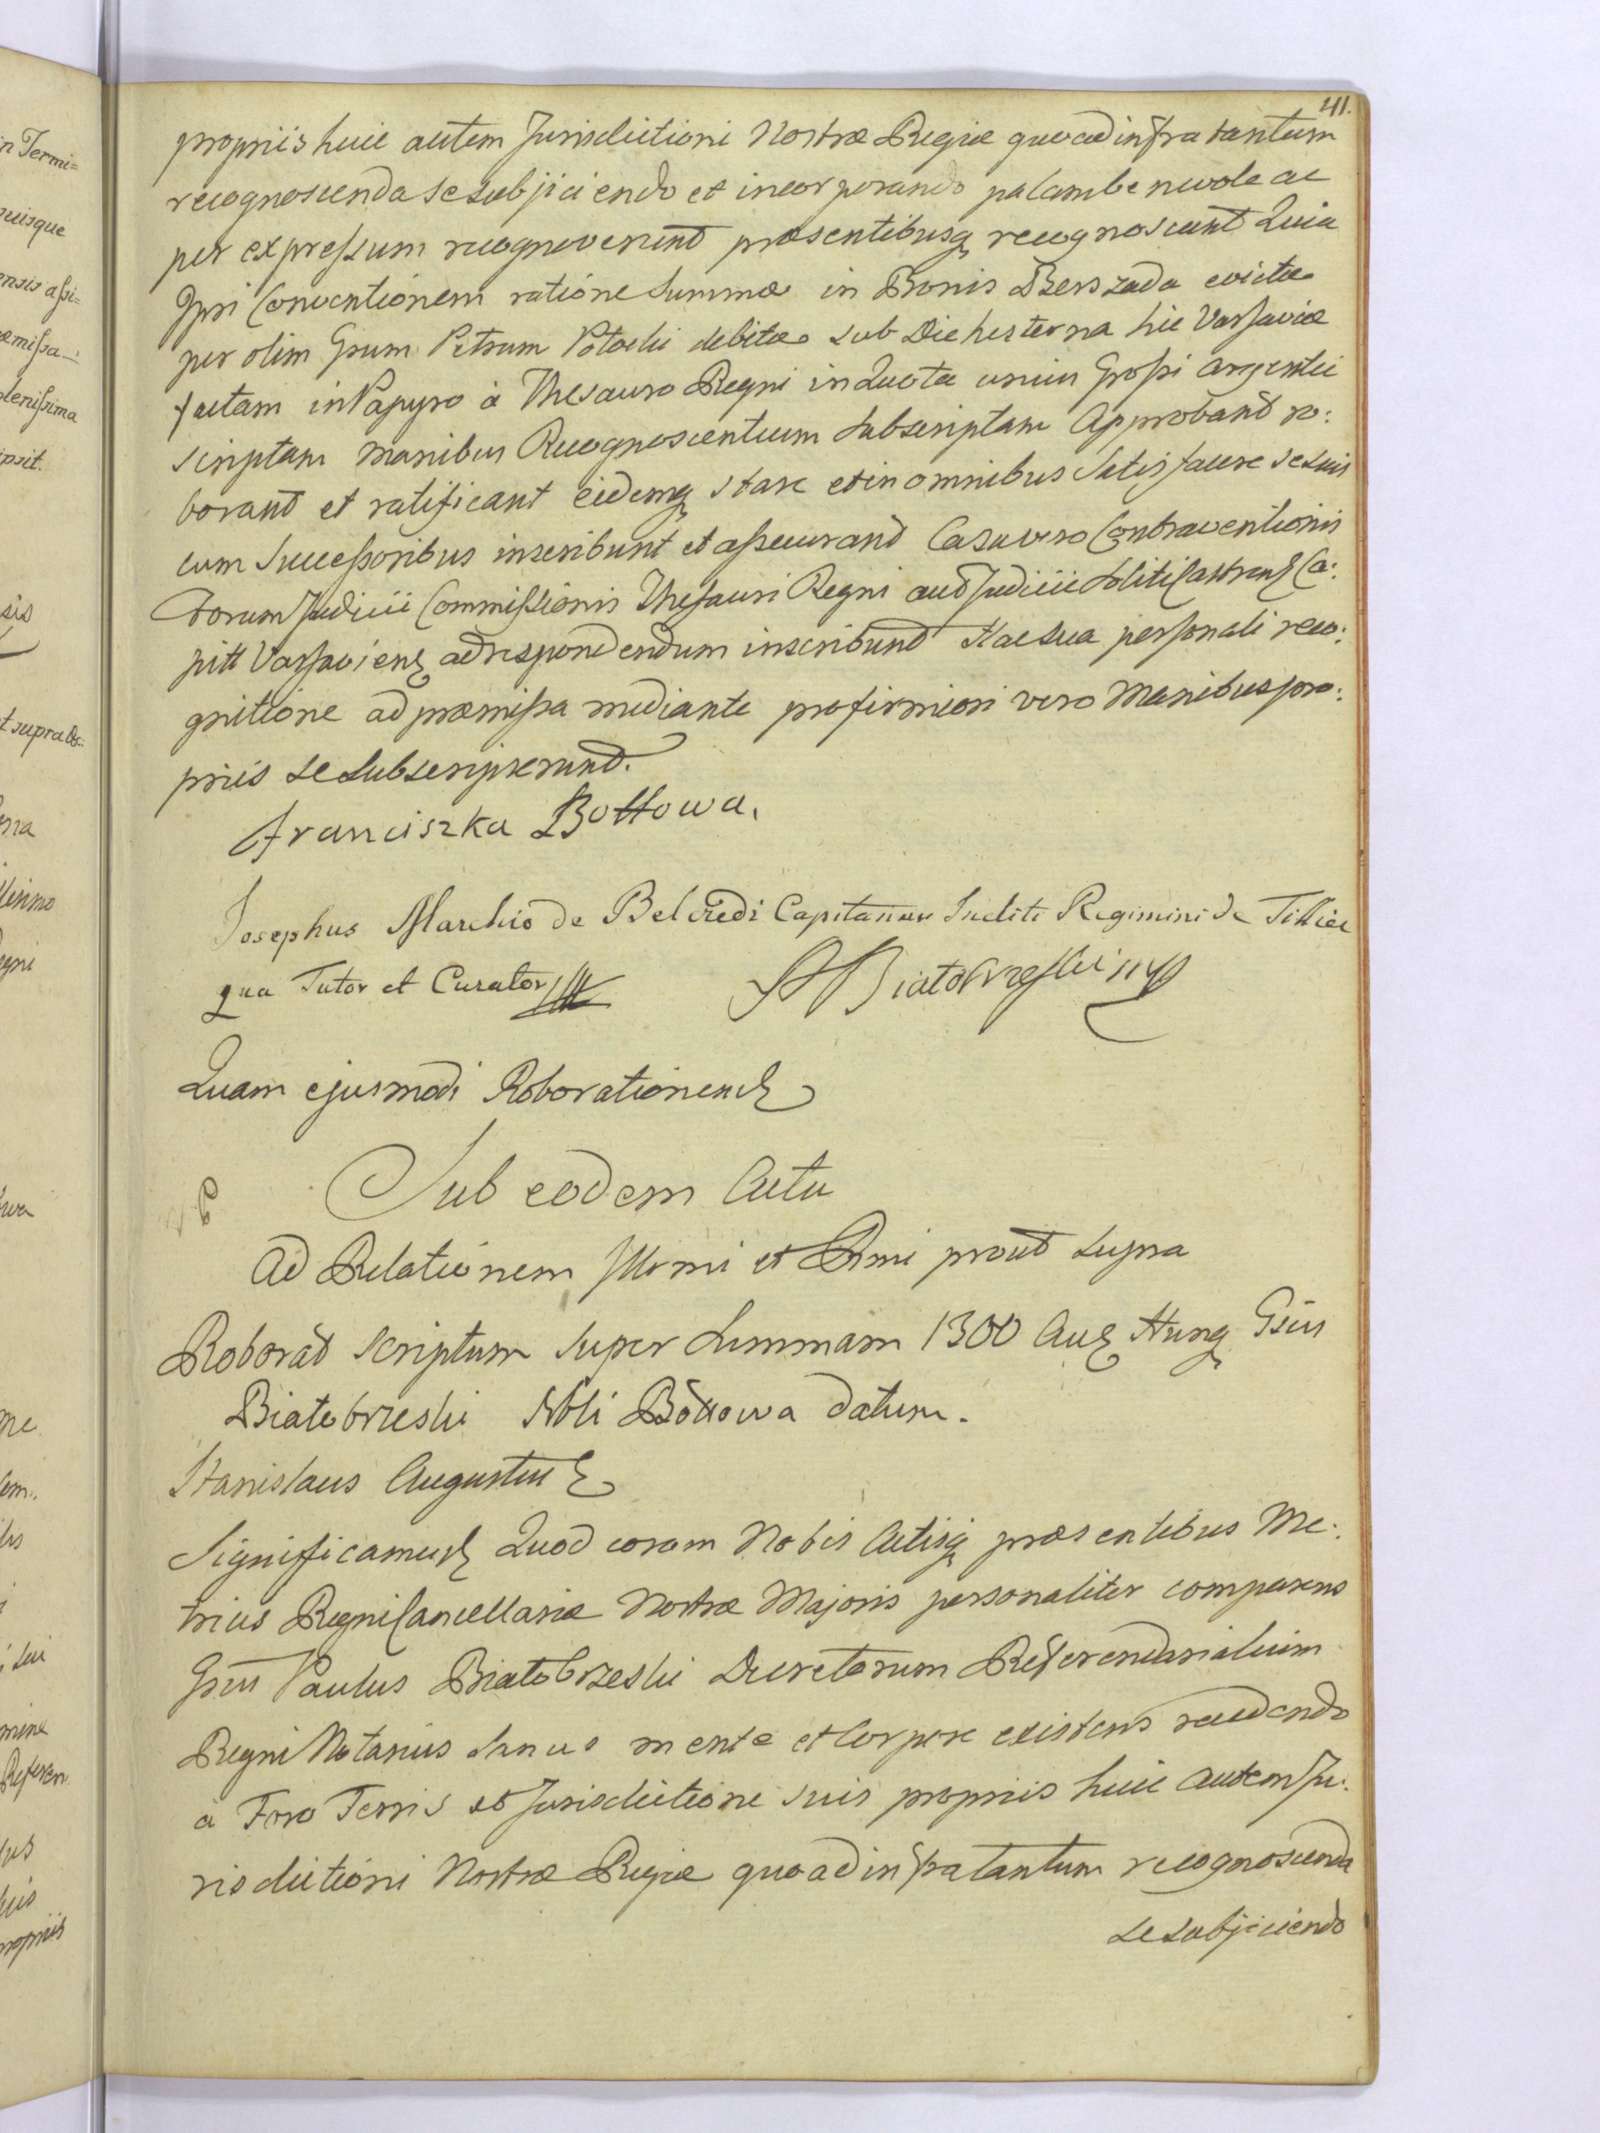 41.
propriis huic autem Jurisdictioni Nostræ Regiæ quoad infra tantum
recognoscenda se subjiciendo et incorporando palam benevole ac
per expressum recognoverunt præsentibusq recognoscunt Quia
Ipsi Conventionem ratione Summæ in Bonis Berszada evictæ
per olim Gsum Petrum Potocki debitæ sub Die hesterna hic Varsaviæ
factam in Papyro à Thesauro Regni in Quota unius Grossi argentei
scriptam Manibus Recognoscentium subscriptam Approbant ro:
borant et ratificant eidemq stare et in omnibus satisfacere se suis
cum Successoribus inscribunt et assecurant Casu vero Contraventionis
Forum Judicii Commissionis Thesauri Regni aut Judicii soliti Castren Ca:
pitt Varsavien ad respondendum inscribunt Hac sua personali reco:
gnitione ad præmissa mediante pro firmiori vero Manibus pro:
priis se subscripserunt.
Franciszka Bottowa.
Josephus Marchio de Belcredi Capitanus Incliti Regimini de Tillier
qua Tutor et Curator
PBiałobrzeski mp
Quam ejusmodi Roborationem
Sub eodem Actu
Ad Relationem Illmi et Rmi prout supra
Roborat Scriptum super Summam 1300 Au Hung Gsus
Białobrzeski Nbli Bottowa datum.
Stanislaus Augustus
Significamus Quod coram Nobis Actisq præsentibus Me:
trices Regni Cancellariæ Nostræ Majoris personaliter comparens
Gsus Paulus Białobrzeski Decretorum Referendarialium
Regni Notarius sanus mente et Corpore existens recedendo
à Foro Terris et Jurisdictione suis propriis huic autem Ju:
risdictioni Nostræ Regiæ quoad infra tantum recognoscenda
se subjiciendo